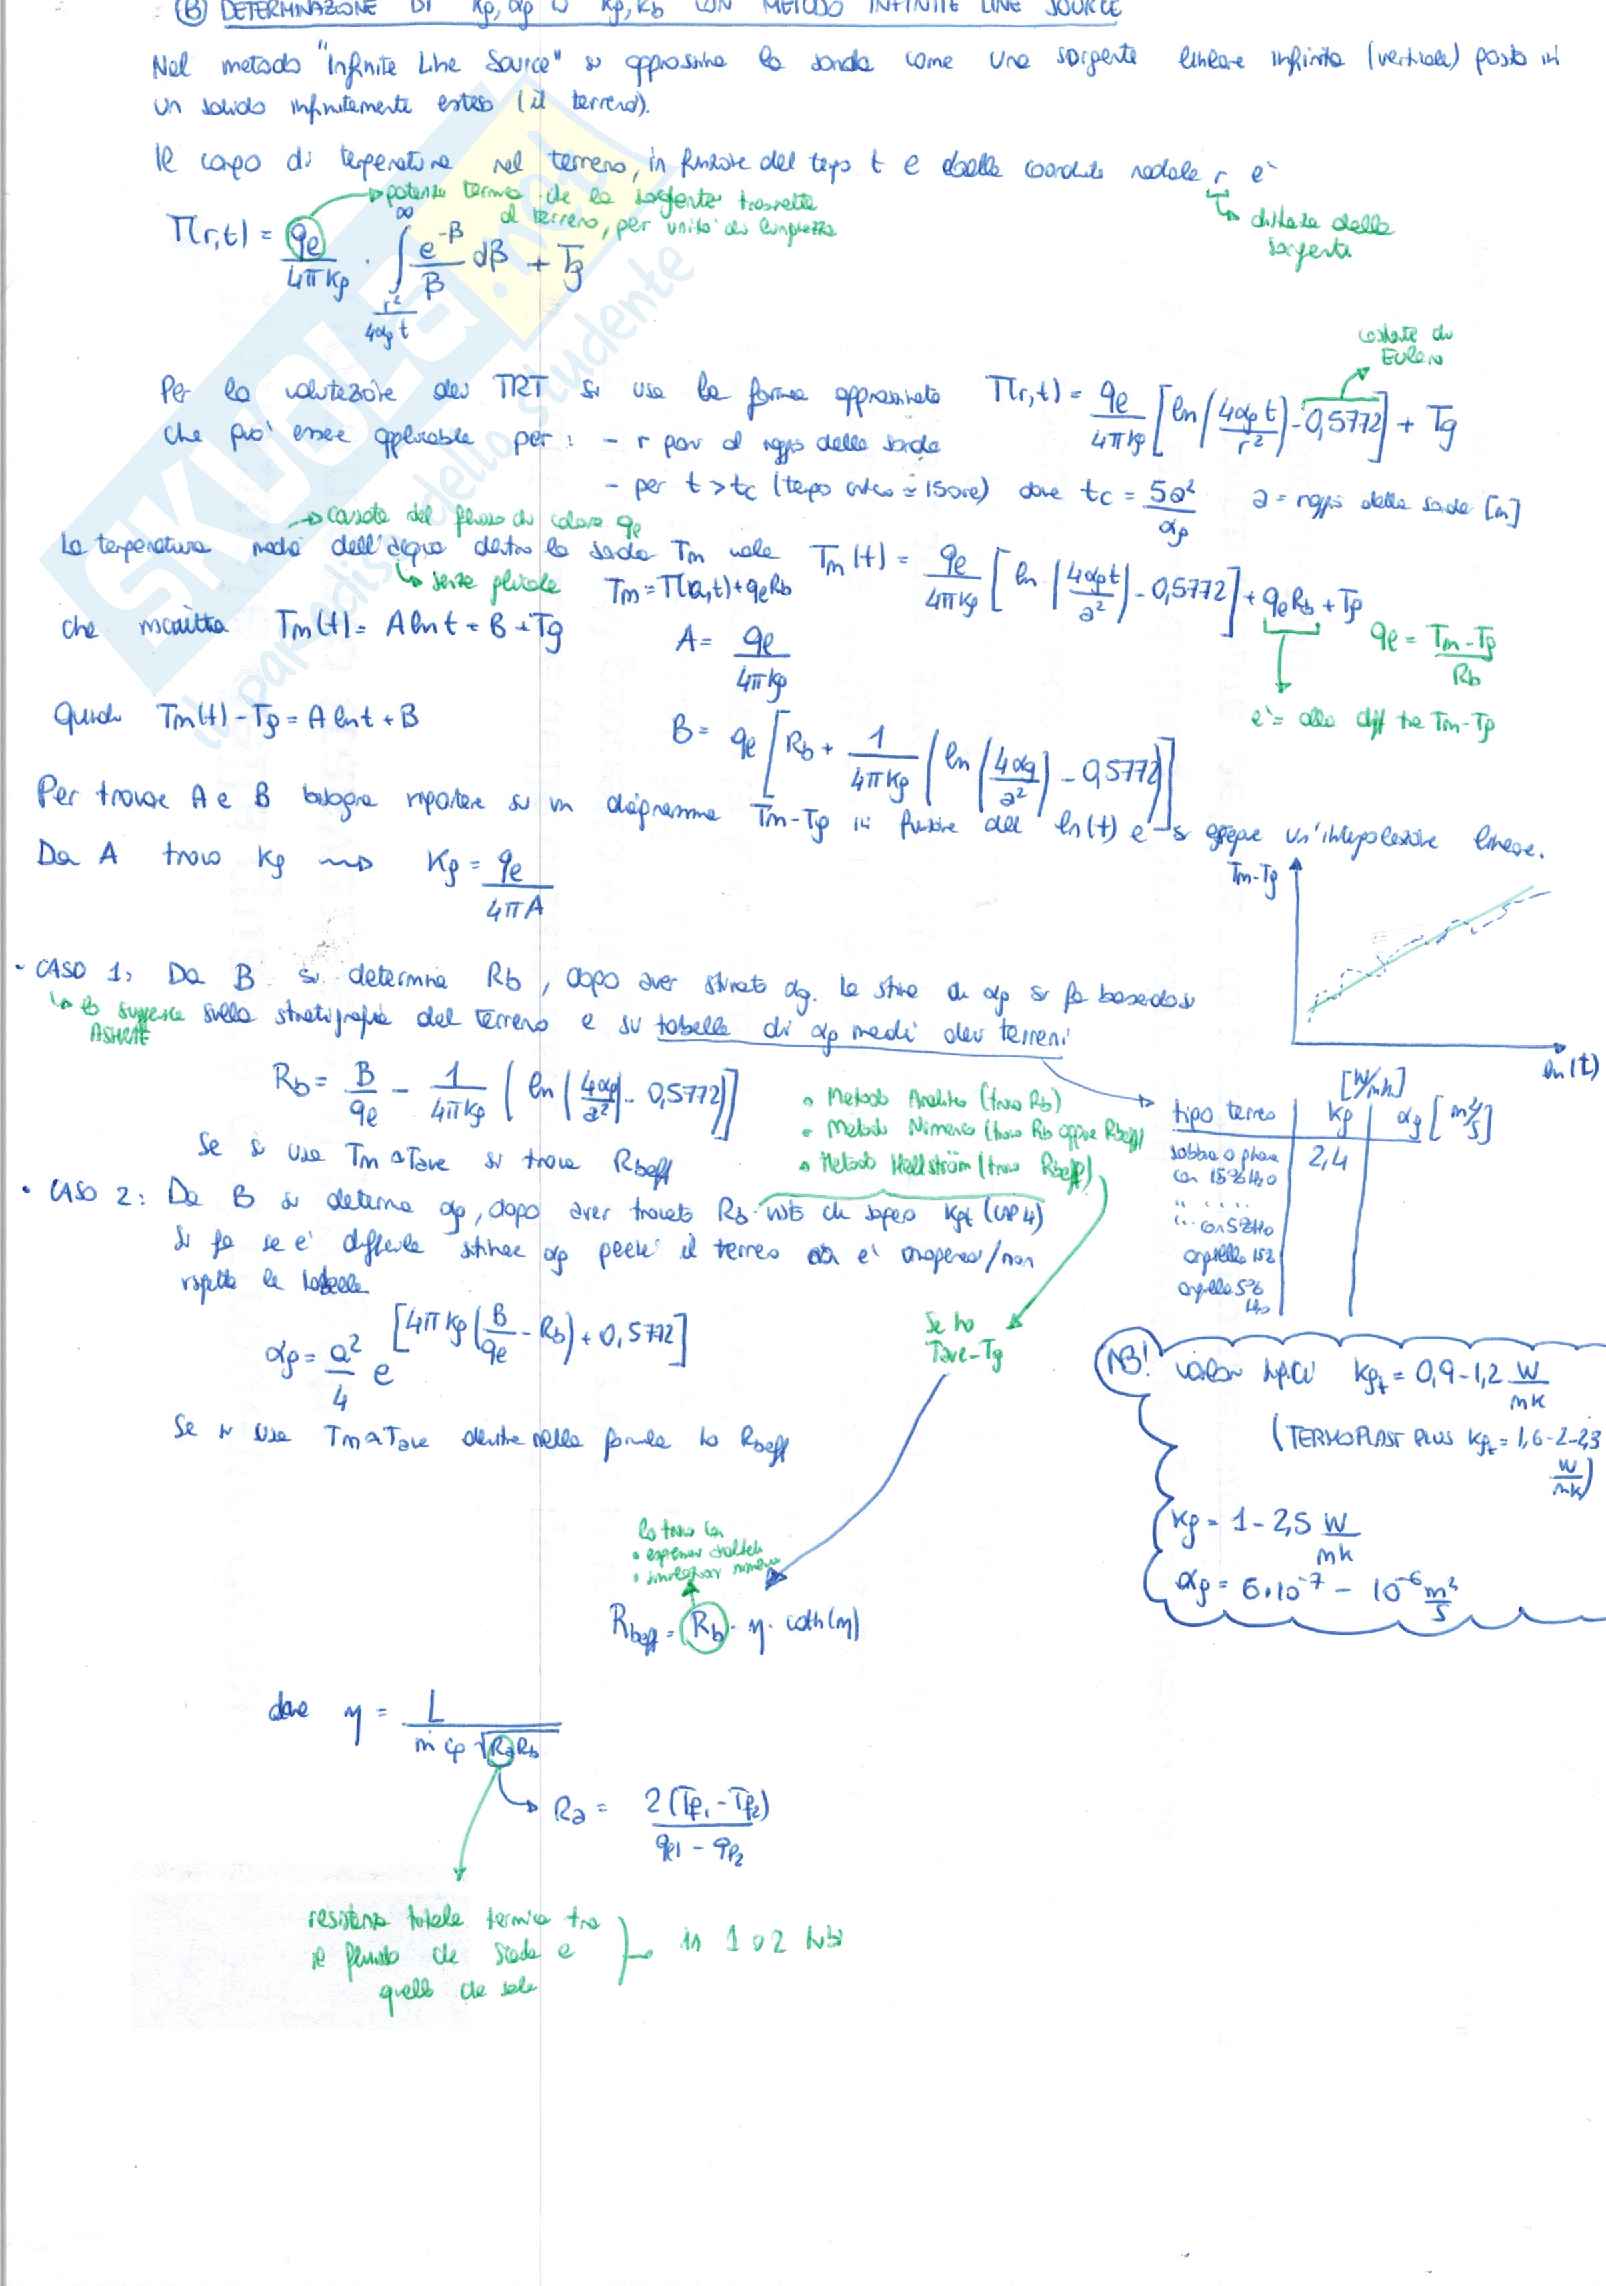 (B) DETERMINAZIONE DI kg, αg o kg, Rb CON METODO INFINITE LINE SOURCE
Nel metodo "Infinite Line Source" si approssima la sonda come una sorgente lineare infinita (verticale) posta in
un solido infinitamente esteso (il terreno).
Il capo di temperatura nel terreno, in funzione del tempo t e della coordinata radiale r è
potenza termica che la sorgente trasmette
al terreno, per unità di lunghezza
distanza dalla
sorgente
T(r,t) = qe/4πkg · ∫ r²/4αg t ∞ e^-β/β dβ + Tg
costante di
Eulero
Per la valutazione del TRT si usa la forma approssimata T(r,t) = qe/4πkg [ln(4αg t/r²) - 0,5772] + Tg
che può essere applicabile per: - r pari al raggio della sonda
- per t > tc (tempo critico ≃ 15 ore) dove tc = 5a²/αg a = raggio della sonda [m]
causata del flusso di calore qe
La temperatura media dell'acqua dentro la sonda Tm vale Tm(t) = qe/4πkg [ln(4αg t/a²) - 0,5772] + qeRb + Tg
senza pluviale Tm = T(a,t) + qeRb
che riscritta Tm(t) = A ln t + B + Tg A = qe/4πkg
qe = Tm - Tg/Rb
è = alla diff tra Tm - Tg
Quindi Tm(t) - Tg = A ln t + B B = qe [Rb + 1/4πkg (ln(4αg/a²) - 0,5772)]
Per trovare A e B bisogna riportare su un diagramma Tm-Tg in funzione del ln(t) e si esegue un'interpolazione lineare.
Da A trovo kg ⟿ kg = qe/4πA
Tm-Tg
ln(t)
• CASO 1: Da B si determina Rb, dopo aver stimato αg. La stima di αg si fa basandosi
lo suggerisce
ASHRAE
sulla stratigrafia del terreno e su tabelle di αg medi dei terreni
Rb = B/qe - 1/4πkg (ln(4αg/a²) - 0,5772)]
Se si usa Tm ≃ Tave si trova Rbeff
• Metodo Analitico (trovo Rb)
• Metodo Numerico (trovo Rb oppure Rbeff)
• Metodo Hellström (trovo Rbeff)
[W/mk]
tipo terreno kg αg [m²/s]
sabbia o ghiaia 2,4
con 15% H2O
" ....
".. con 5% H2O
argilla 15%
argilla 5%
H2O
• CASO 2: Da B si determina αg, dopo aver trovato Rb visto che sapevo kgt (CAP 4)
Si fa se è difficile stimare αg perché il terreno è omogeneo/non
rispetta le tabelle
αg = a²/4 e^[4πkg(B/qe - Rb) + 0,5772]
Se ho
Tave-Tg
Se si usa Tm ≃ Tave dentro nella formula ho Rbeff
NB! valori tipici kgt = 0,9 - 1,2 W/mk
(TERMOPLAST PLUS kgt = 1,6 - 2 - 2,3
W/mk)
kg = 1 - 2,5 W/mk
αg = 6·10^-7 - 10^-6 m²/s
lo trovo con
Rbeff = Rb · η · coth(η)
dove η = L/ṁ cp √RaRb
Ra = 2(Tf1 - Tf2)/qf1 - qf2
resistenza totale termica tra
il fluido che scende e
quello che sale
in 1 o 2 tubi
SKUOLA.net
il paradiso dello studente